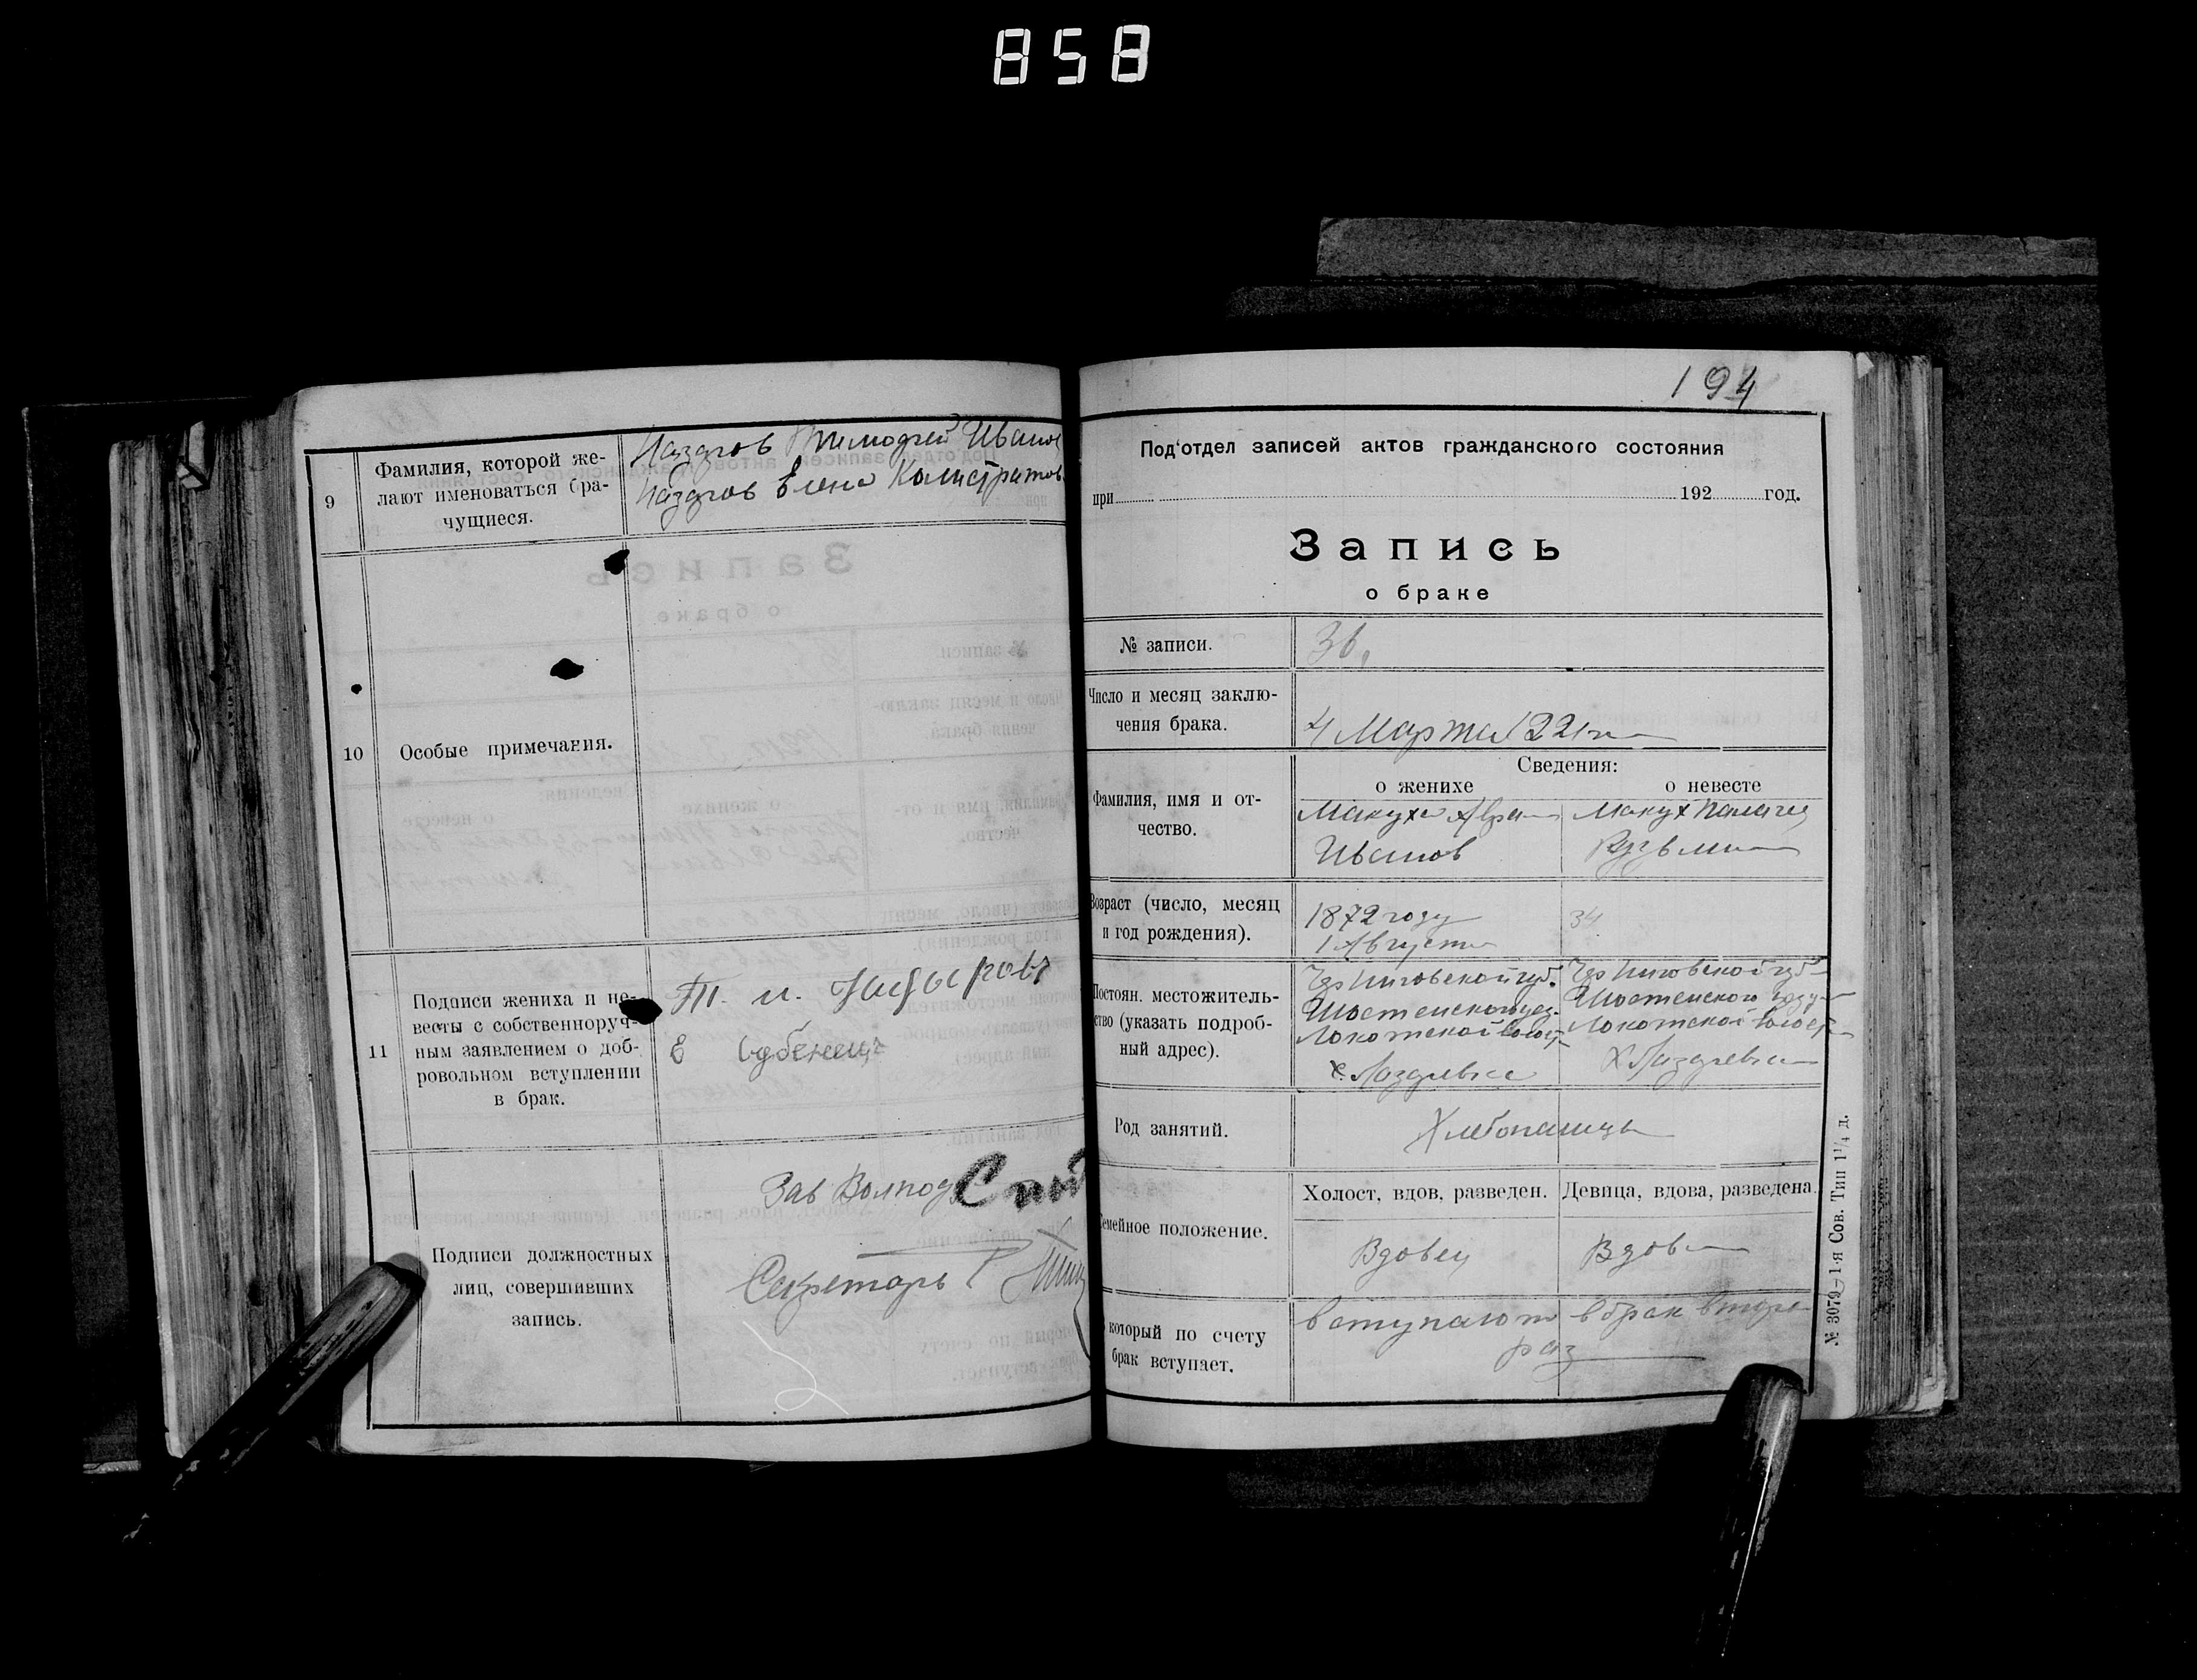 858
9
Фамилия, которой же-
лают именоваться бра-
чущиеся.
Назаров Тимофей Иванов
Назаров Елена Калистратов
10
Особые примечания.
11
Подписи жениха и не-
весты с собственноруч-
ным заявлением о доб-
ровольном вступлении
в брак.
Т. И.
Е
Подписи должностных
лиц, совершивших
запись.
Зав Волпод
Секретарь
194
Под'отдел записей актов гражданского состояния
при 192 год.
Запись
о браке
№ записи.
36.
Число и месяц заклю-
чения брака.
4 Марта 22 г
Сведения:
о женихе
о невесте
Фамилия, имя и от-
чество.
Макуха
Иванов
Макух
Возраст (число, месяц
и год рождения).
1872 году
1 Августа
34
Постоян. местожитель-
ство (указать подроб-
ный адрес).
Черниговской губ.
Шостенского уез.
Локотской волост
х. Лазаревка
Черниговской губ
Шостенского уезду
Локотской волост
х Лазаревка
Род занятий.
Хлебопашцы
Семейное положение.
Холост, вдов, разведен.
Девица, вдова, разведена.
Вдовец
Вдова
который по счету
брак вступает.
вступают в брак второ
раз
№ 3079—1-я Сов. Тип 1¹/₄ д.